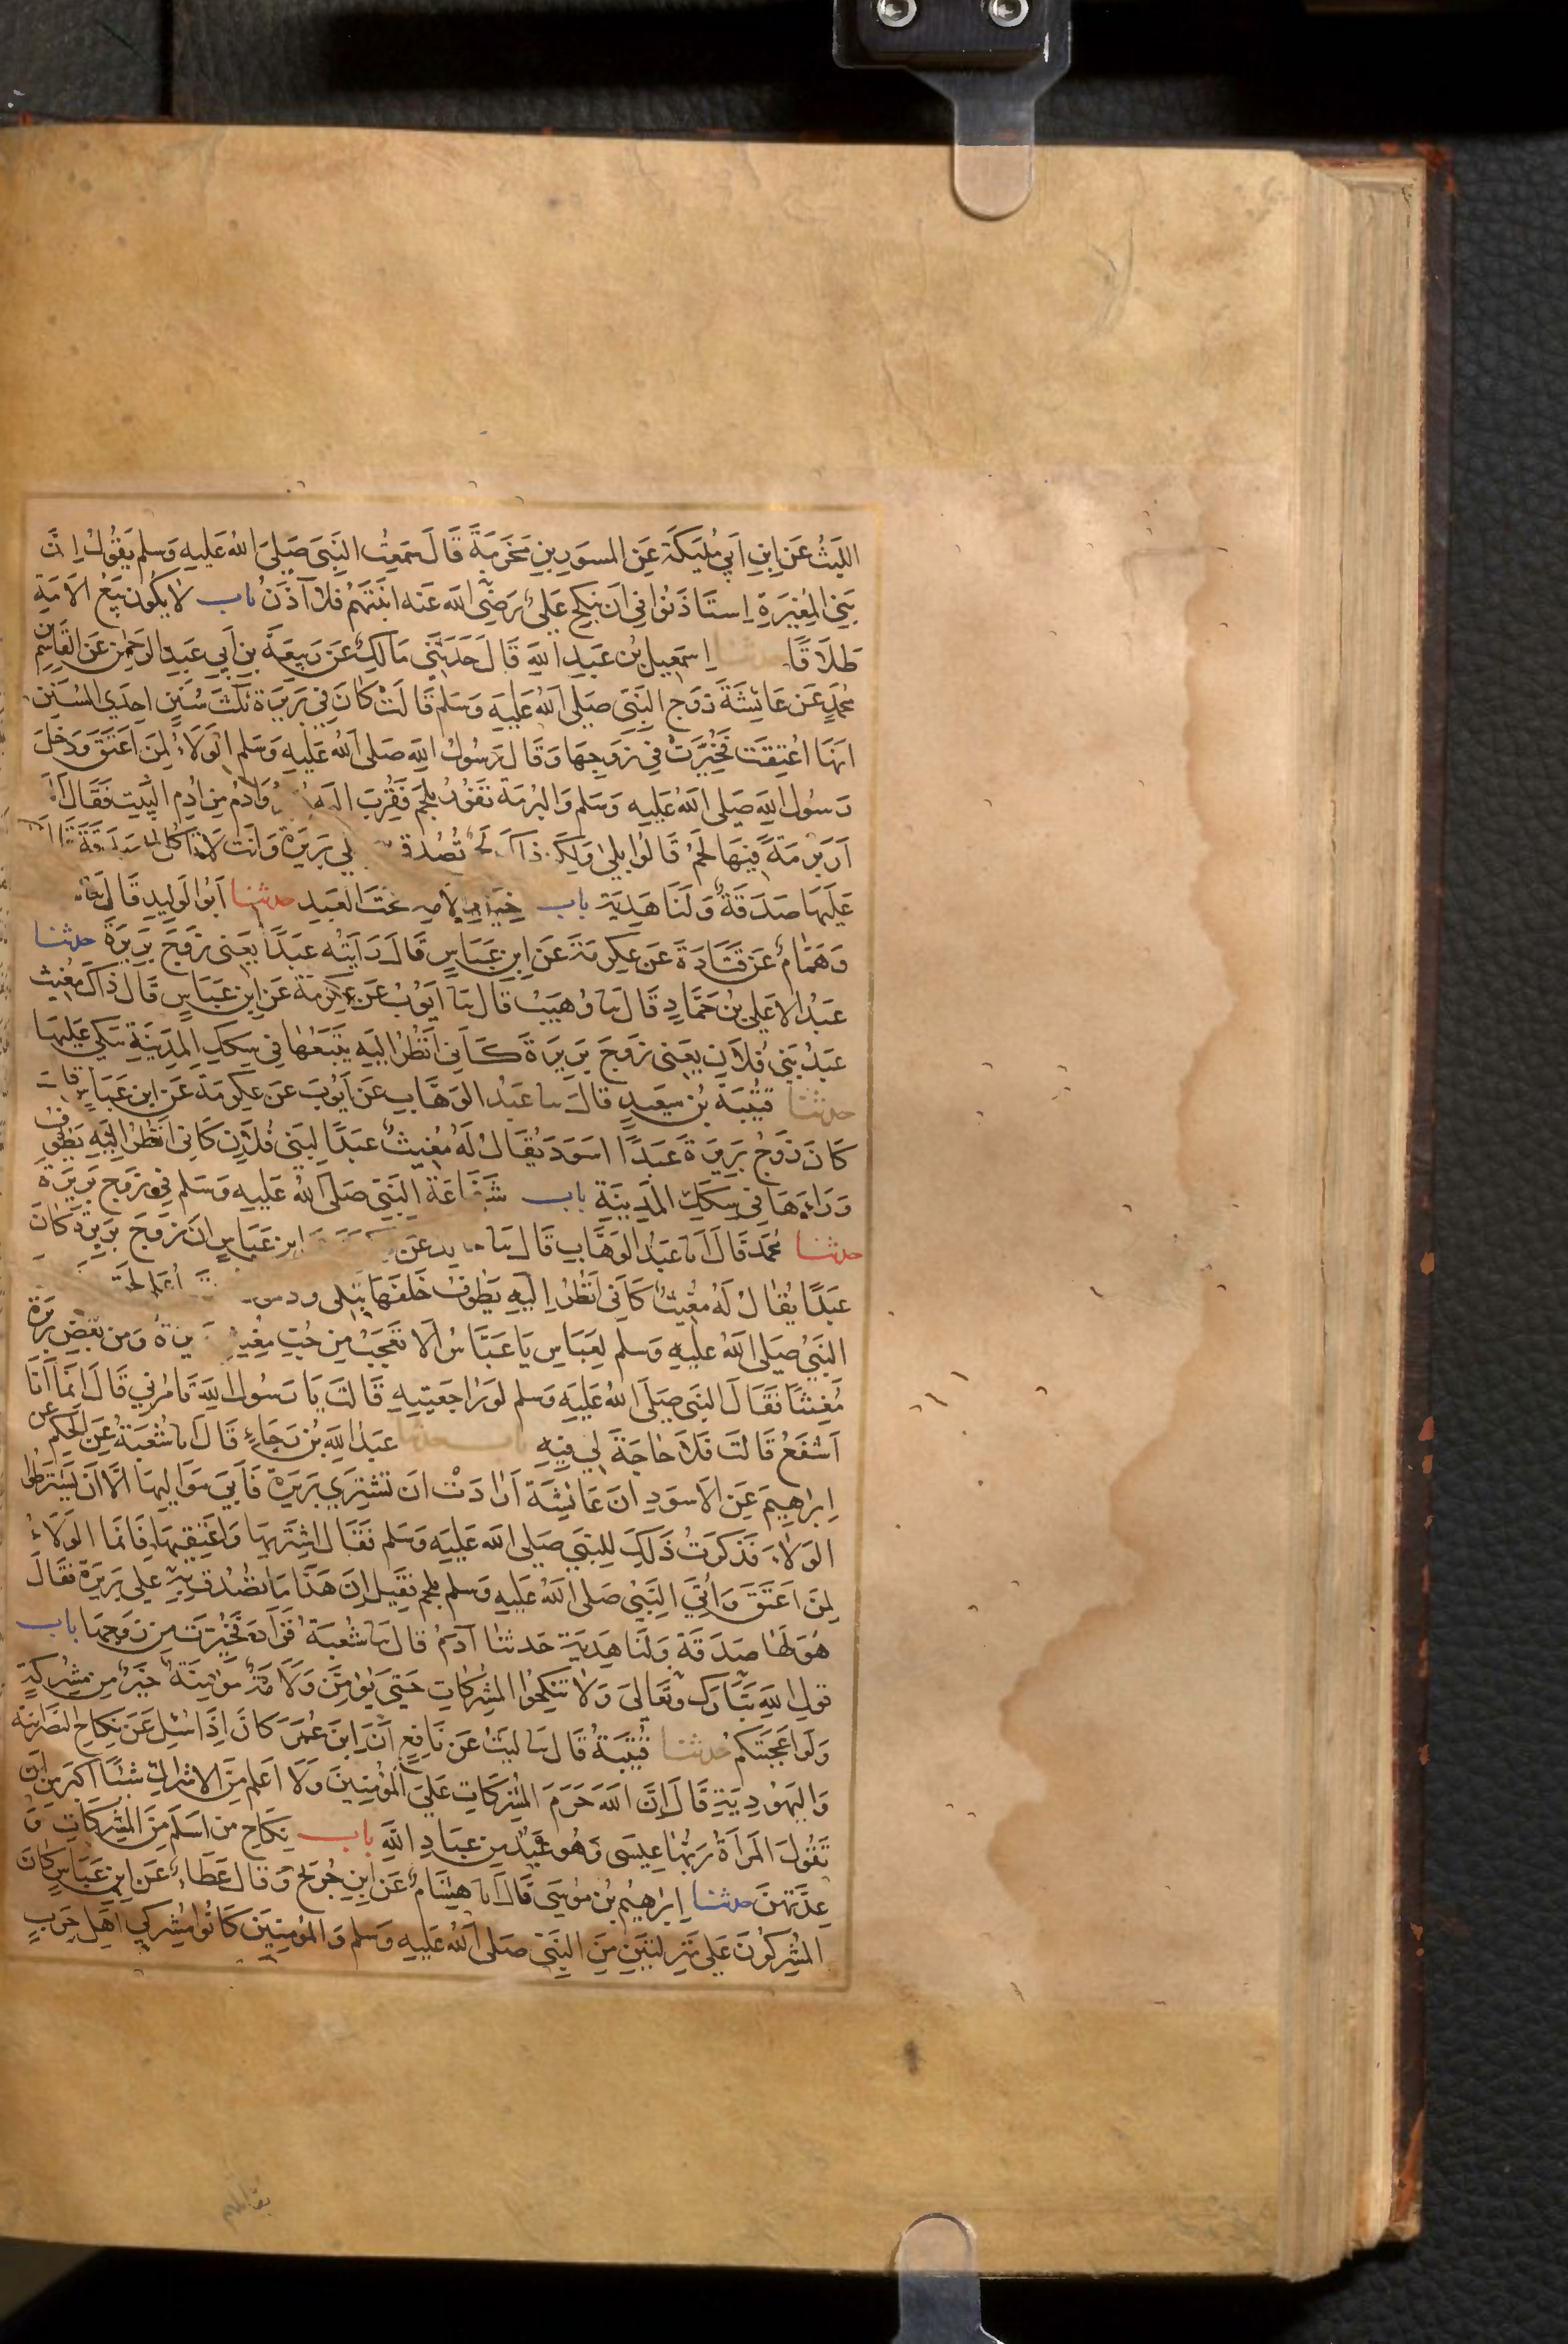 الليث عن ابن ابي مليكة عن المسور بن مخرمة قال سمعت النبي صلى الله عليه وسلم يقول ان
بني المغيرة استاذنوا في ان ينكح علي رضى الله عنه ابنتهم فلا آذن باب لا يكون بيع الامة
طلاقا اسمعيل بن عبد الله قال حدثني مالك عن ربيعة بن ابي عبد الرحمن عن القاسم بن
محمد عن عائشة زوج النبي صلى الله عليه وسلم قالت كان في بريرة ثلث سنين احدي السنين
انها اعتقت فخيرت في زوجها وقال رسول الله صلى الله عليه وسلم الولاء لمن اعتق ودخل
رسول الله صلى الله عليه وسلم والبرمة تفور بلحم فقرب اليه وادم من ادم البيت فقال
ار برمة فيها لحم قالوا بلى ولكن ذاك لحم تصدق لي بريرة وانت لا تاكل
عليها صدقة ولنا هدية باب خيار الامة تحت العبد حدثنا ابو الوليد قال
وهمام عن قتادة عن عكرمة عن ابن عباس قال رايته عبدا يعني زوج بريرة حدثنا
عبد الاعلى بن حماد قال نا وهيب قال نا ايوب عن عكرمة عن ابن عباس قال ذاك مغيث
عبد بني فلان يعني زوج بريرة كاني انظر اليه يتبعها في سكك المدينة يبكي عليها
حدثنا قتيبة بن سعيد قال نا عبد الوهاب عن ايوب عن عكرمة عن ابن عباس قال
كان زوج بريرة عبدا اسود يقال له مغيث عبدا لبني فلان كاني انظر اليه يطوف
وراءها في سكك المدينة باب شفاعة النبي صلى الله عليه وسلم في زوج بريرة
حدثنا محمد قال انا عبد الوهاب قال نا عن ابن عباس ان زوج بريرة كان
عبدا يقال له مغيث كاني انظر اليه يطوف خلفها يبكي
النبي صلى الله عليه وسلم لعباس يا عباس الا تعجب من حب مغيث ومن بغض بريرة
مغيثا فقال النبي صلى الله عليه وسلم لو راجعتيه قالت يا رسول الله تامرني قال انما انا
اشفع قالت فلا حاجة لي فيه عبد الله بن رجاء قال نا شعبة عن الحكم عن
ابرهيم عن الاسود ان عائشة ارادت ان تشتري بريرة فابي مواليها الا ان يشترطوا
الولاء فذكرت ذلك للنبي صلى الله عليه وسلم فقال اشتريها واعتقيها فانما الولاء
لمن اعتق واتي النبي صلى الله عليه وسلم بلحم فقيل ان هذا ما تصدق به على بريرة فقال
هو لها صدقة ولنا هدية حدثنا آدم قال نا شعبة فزاد فخيرت من زوجها باب
قول الله تبارك وتعالى ولا تنكحوا المشركات حتى يؤمن ولامة مومنة خير من مشركة
ولو اعجبتكم حدثنا قتيبة قال نا ليث عن نافع ان ابن عمر كان اذا سئل عن نكاح النصرانية
واليهودية قال ان الله حرم المشركات على المؤمنين ولا اعلم من الاشراك شيئا اكبر من ان
تقول المراة ربها عيسى وهو عبد من عباد الله باب نكاح من اسلم من المشركات و
عدتهن حدثنا ابرهيم بن موسى قال انا هشام عن ابن جريج وقال عطاء عن ابن عباس كان
المشركون على منزلتين من النبي صلى الله عليه وسلم والمؤمنين كانوا مشركي اهل حرب